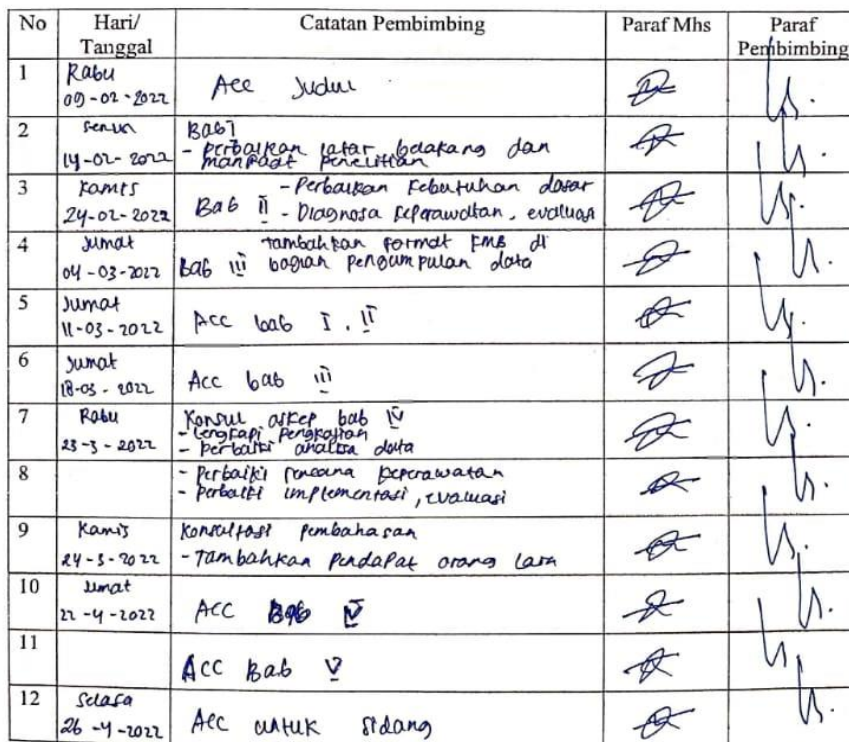 No Hari/ Tanggal Catatan Pembimbing Paraf Mhs Paraf Pembimbing
1 Rabu
09-02-2022 Acc Judul
2 Senin Bab I
- Perbaikan latar belakang dan
14-02-2022 manfaat penelitian
3 Kamis - Perbaikan Kebutuhan dasar
24-02-2022 Bab II - Diagnosa keperawatan, evaluasi
4 Jumat tambahkan format KMB di
04-03-2022 Bab III bagian pengumpulan data
5 Jumat
11-03-2022 Acc bab I. II
6 Jumat
18-03-2022 Acc bab III
7 Rabu Konsul askep bab IV
- lengkapi pengkajian
23-3-2022 - perbaiki analisa data
8 - Perbaiki rencana keperawatan
- perbaiki implementasi, evaluasi
9 Kamis Konsultasi pembahasan
24-3-2022 - Tambahkan Pendapat orang lain
10 Jumat
22-4-2022 ACC Bab IV
11 ACC Bab V
12 Selasa
26-4-2022 Acc untuk sidang